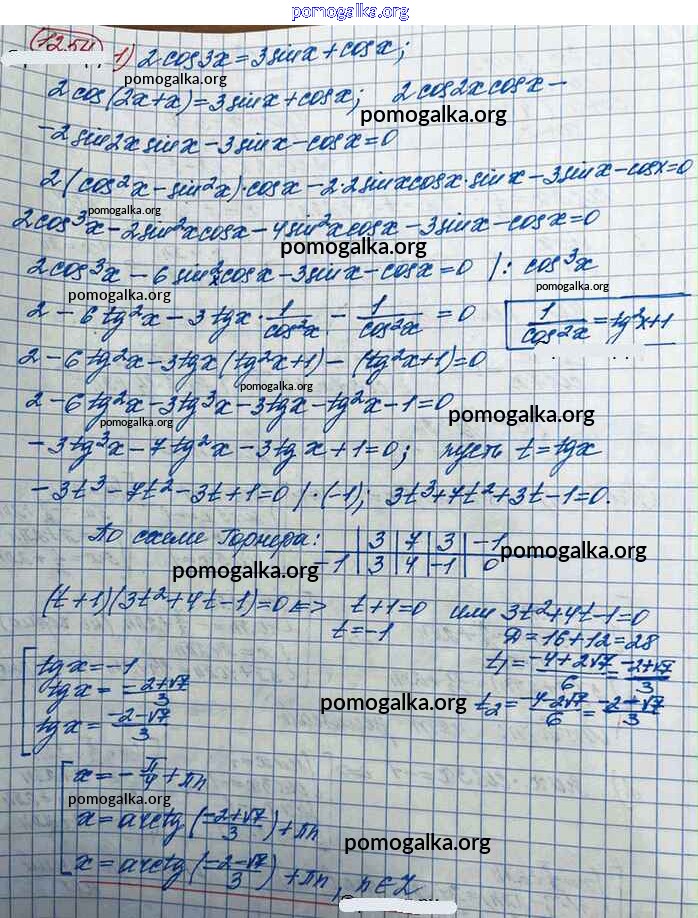 pomogalka.org
1254 1) 2cos3x = 3sinx + cosx;
pomogalka.org
2cos(2x+x) = 3sinx + cosx; 2cos2xcosx −
pomogalka.org
− 2sin2xsinx − 3sinx − cosx = 0
2(cos²x − sin²x)·cosx − 2·2sinxcosx·sinx − 3sinx − cosx = 0
pomogalka.org
2cos³x − 2sin²xcosx − 4sin²xcosx − 3sinx − cosx = 0
pomogalka.org
2cos³x − 6sin²xcosx − 3sinx − cosx = 0 /: cos³x
pomogalka.org pomogalka.org
2 − 6tg²x − 3tgx · 1/cos²x − 1/cos²x = 0 1/cos²x = tg²x + 1
2 − 6tg²x − 3tgx(tg²x+1) − (tg²x+1) = 0
pomogalka.org
2 − 6tg²x − 3tg³x − 3tgx − tg²x − 1 = 0
pomogalka.org
− 3tg³x − 7tg²x − 3tgx + 1 = 0; пусть t = tgx
− 3t³ − 7t² − 3t + 1 = 0 /·(−1); 3t³ + 7t² + 3t − 1 = 0.
По схеме Горнера: | 3 | 7 | 3 | −1
pomogalka.org
−1 | 3 | 4 | −1 | 0
pomogalka.org
(t+1)(3t²+4t−1) = 0 <=> t+1 = 0 или 3t²+4t−1 = 0
t = −1 D = 16+12 = 28
t₁ = −4+2√7/6 = −2+√7/3
t₂ = −4−2√7/6 = −2−√7/3
tgx = −1
tgx = −2+√7/3
tgx = −2−√7/3
pomogalka.org
x = −π/4 + πn
pomogalka.org
x = arctg(−2+√7/3) + πn
pomogalka.org
x = arctg(−2−√7/3) + πn, n∈Z